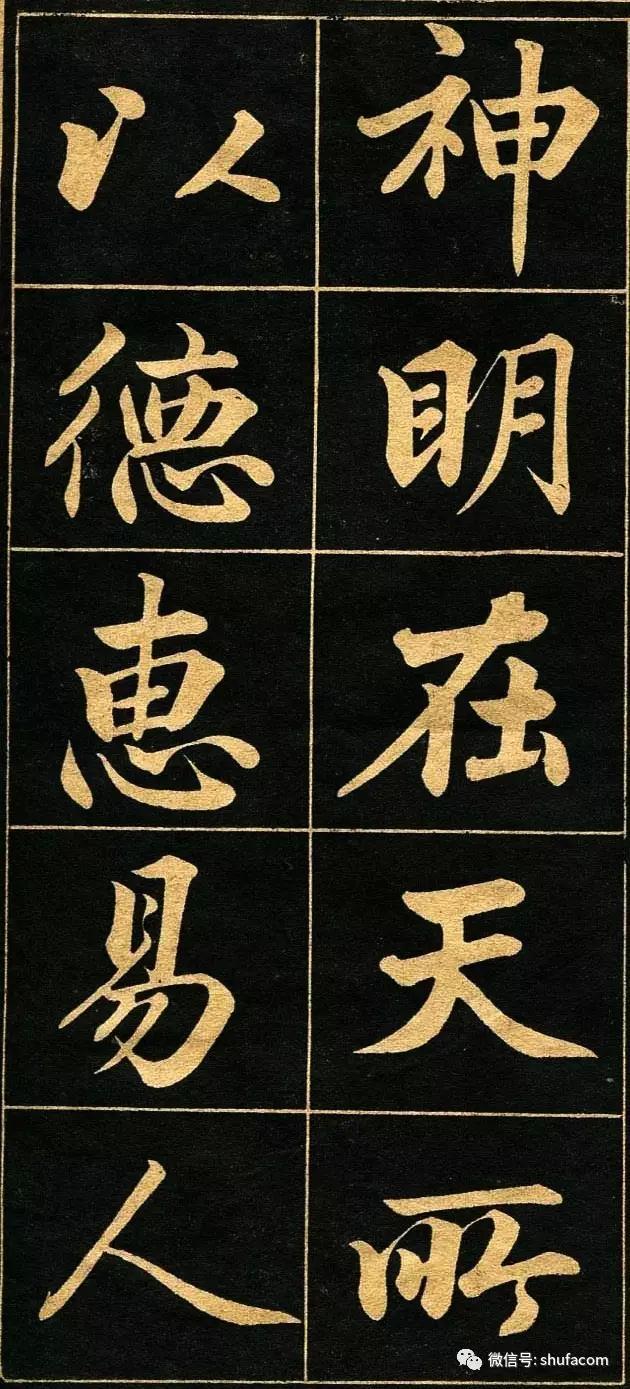 神明在天所
以德惠易人
微信号: shufacom